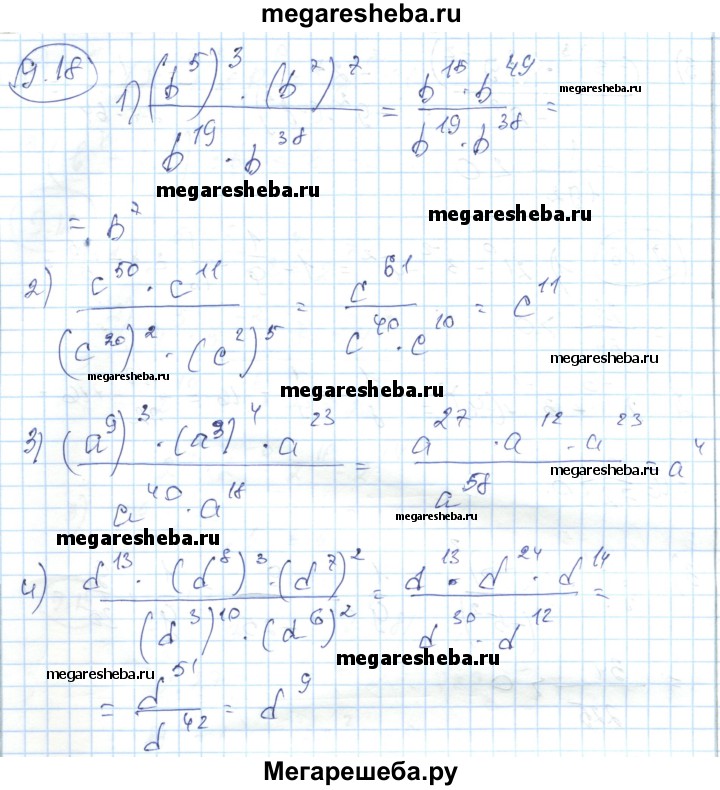 megaresheba.ru
9.18
1) (b^5)^3 · (b^7)^7 / b^19 · b^38 = b^15 · b^49 / b^19 · b^38 =
megaresheba.ru
megaresheba.ru
megaresheba.ru
= b^7
2) c^50 · c^11 / (c^20)^2 · (c^2)^5 = c^61 / c^40 · c^10 = c^11
megaresheba.ru
megaresheba.ru
megaresheba.ru
3) (a^9)^3 · (a^3)^4 · a^23 / a^40 · a^18 = a^27 · a^12 · a^23 / a^58 = a^4
megaresheba.ru
megaresheba.ru
megaresheba.ru
4) d^13 · (d^8)^3 · (d^7)^2 / (d^3)^10 · (d^6)^2 = d^13 · d^24 · d^14 / d^30 · d^12 =
megaresheba.ru
megaresheba.ru
= d^51 / d^42 = d^9
Мегарешеба.ру